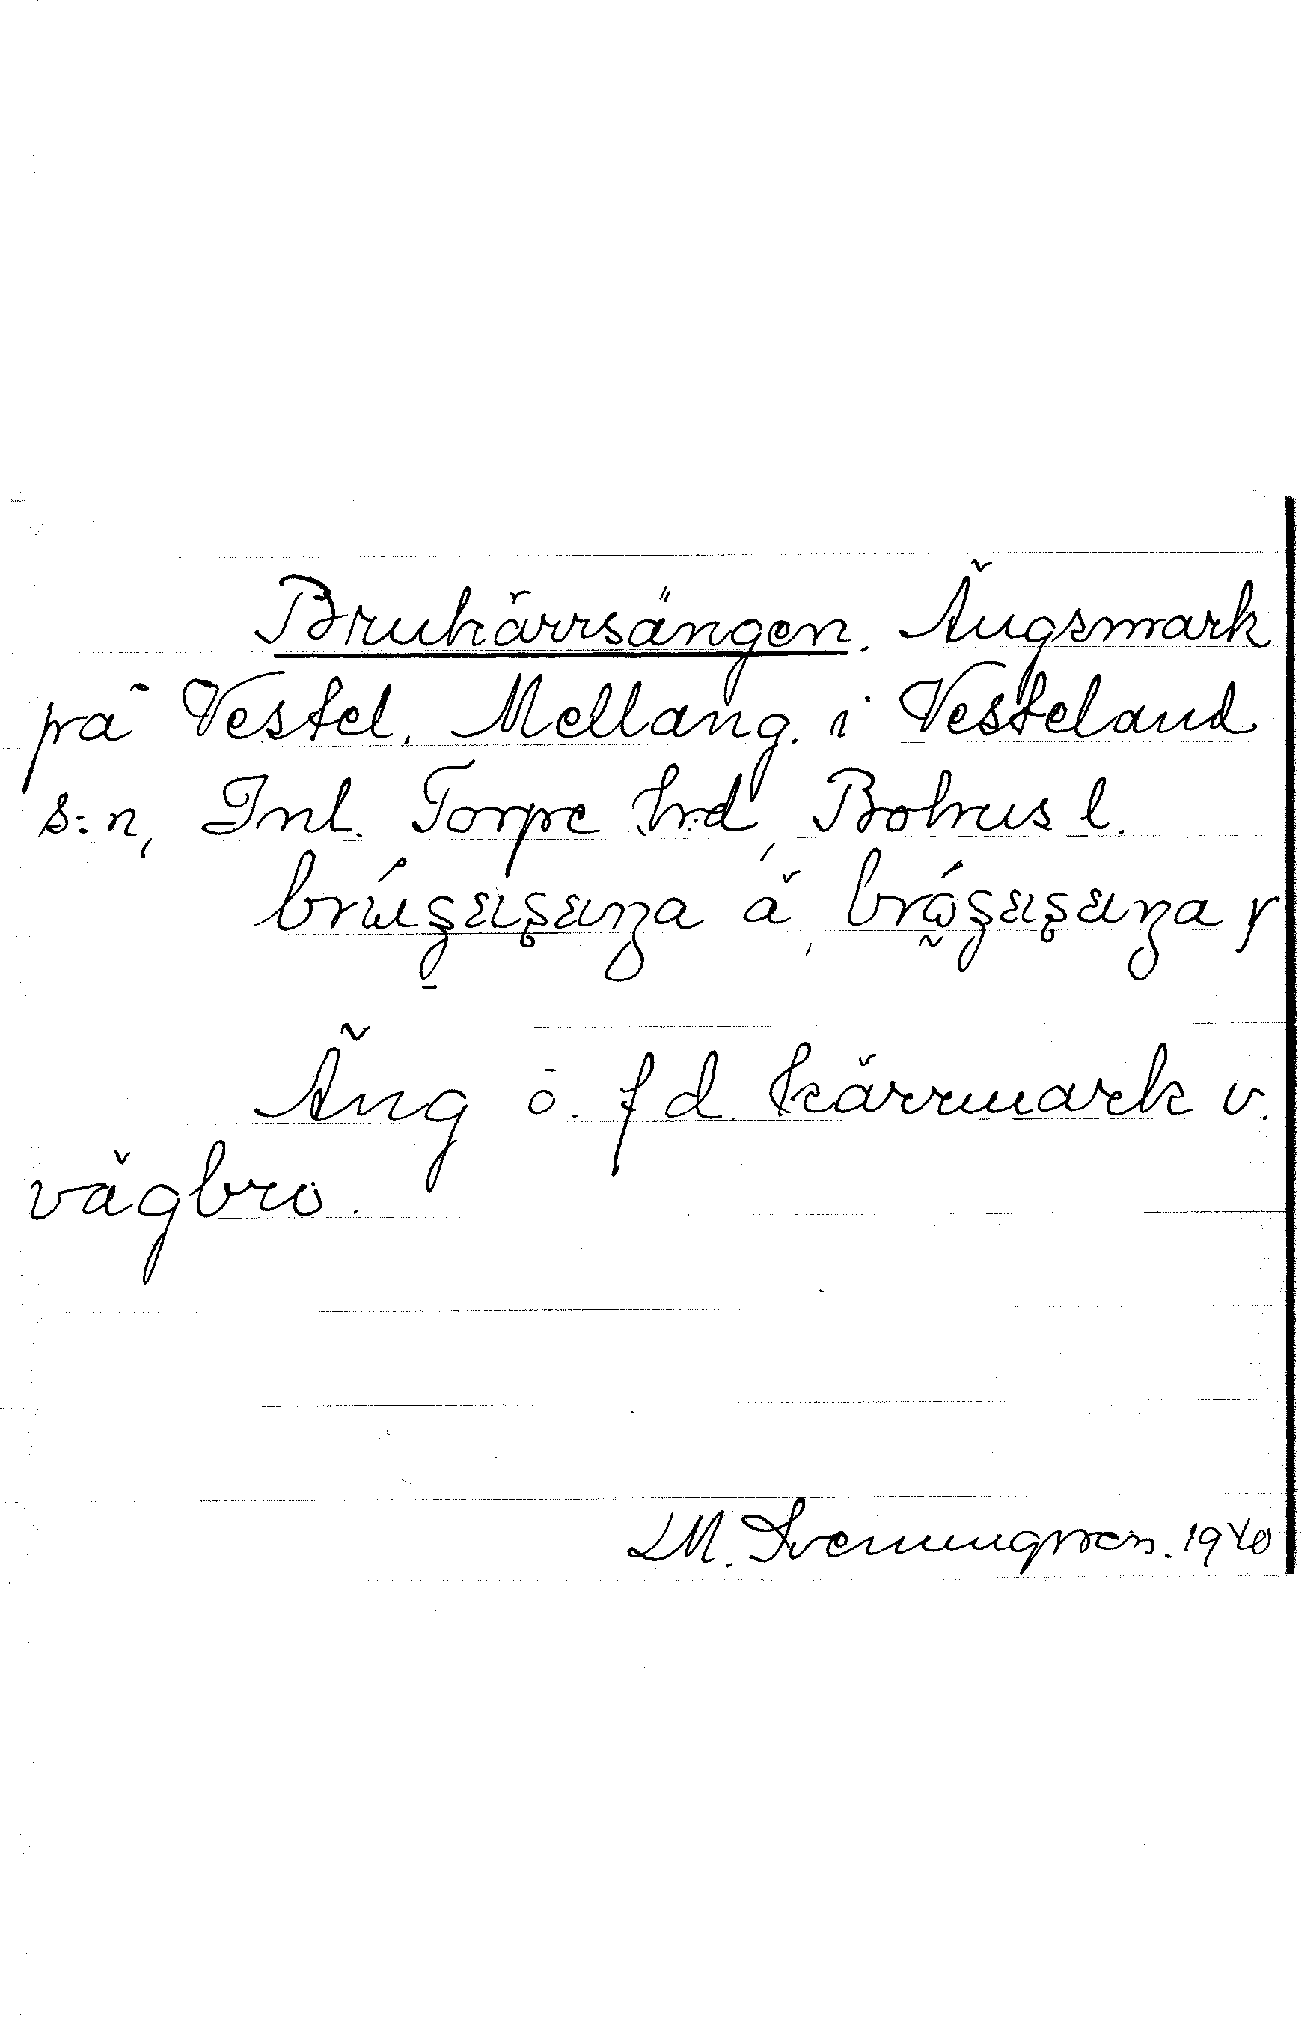 Brukärrsängen. Ängsmark
på Vestel. Mellang. i Vesteland
s:n, Inl. Torpe hrd, Bohus l.
ä, y
Äng o. f d kärrmark v.
vägbro.
M. 1940